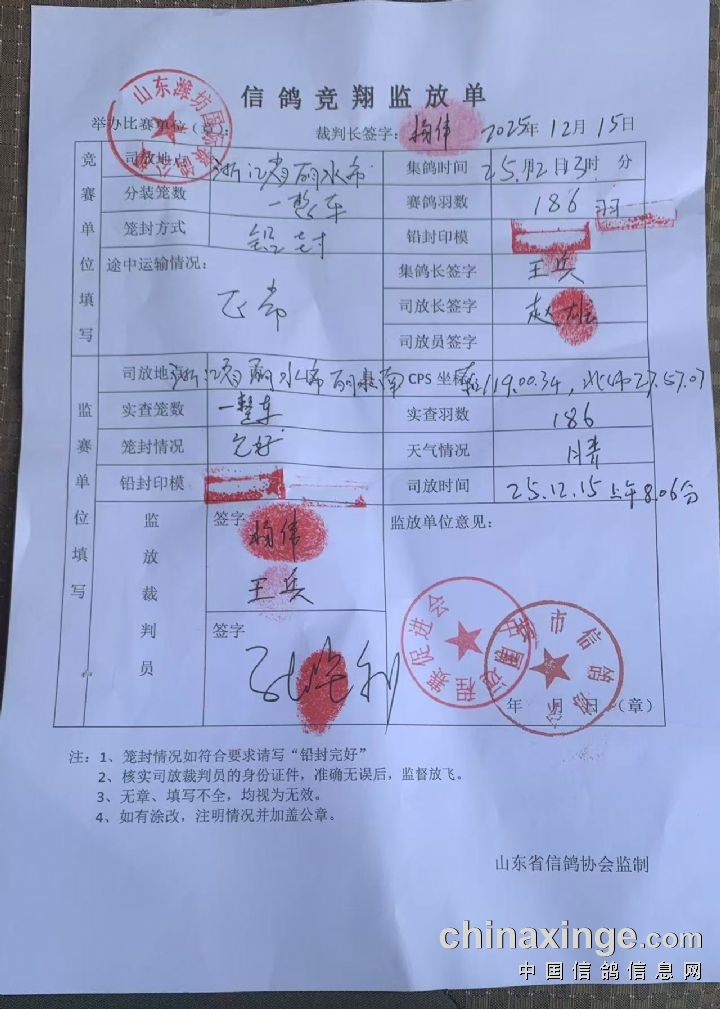 信鸽竞翔监放单
举办比赛单位（章）： 裁判长签字：杨伟 2025年12月15日
竞赛单位填写
司放地点 浙江省丽水市 集鸽时间 25.12日3时 分
分装笼数 一整车 赛鸽羽数 186羽
笼封方式 铅封 铅封印模
途中运输情况： 正常 集鸽长签字 王兵
司放长签字 赵雄
司放员签字
监赛单位填写
司放地点 浙江省丽水市丽水南 CPS 坐标 119.00.34，北纬27.57.07
实查笼数 一整车 实查羽数 186
笼封情况 完好 天气情况 晴
铅封印模 司放时间 25.12.15上午8.06分
监放裁判员
签字 杨伟
王兵
签字
监放单位意见：
年 月 日 （章）
山东潍坊国际
程赛促进会
市信鸽
注：1、笼封情况如符合要求请写“铅封完好”
2、核实司放裁判员的身份证件，准确无误后，监督放飞。
3、无章、填写不全，均视为无效。
4、如有涂改，注明情况并加盖公章。
山东省信鸽协会监制
chinaxinge.com
中国信鸽信息网